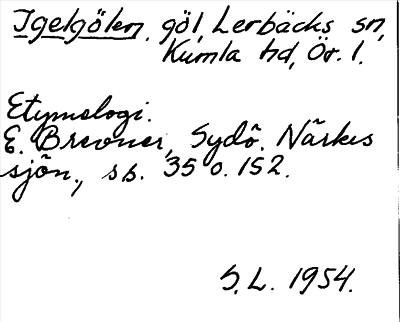 Igelgölen. göl, Lerbäcks sn,
Kumla hd, Ör. l.
Etymologi.
E. Brevner, Sydö. Närkes
sjön., sb. 35 o. 152.
S.L. 1954.